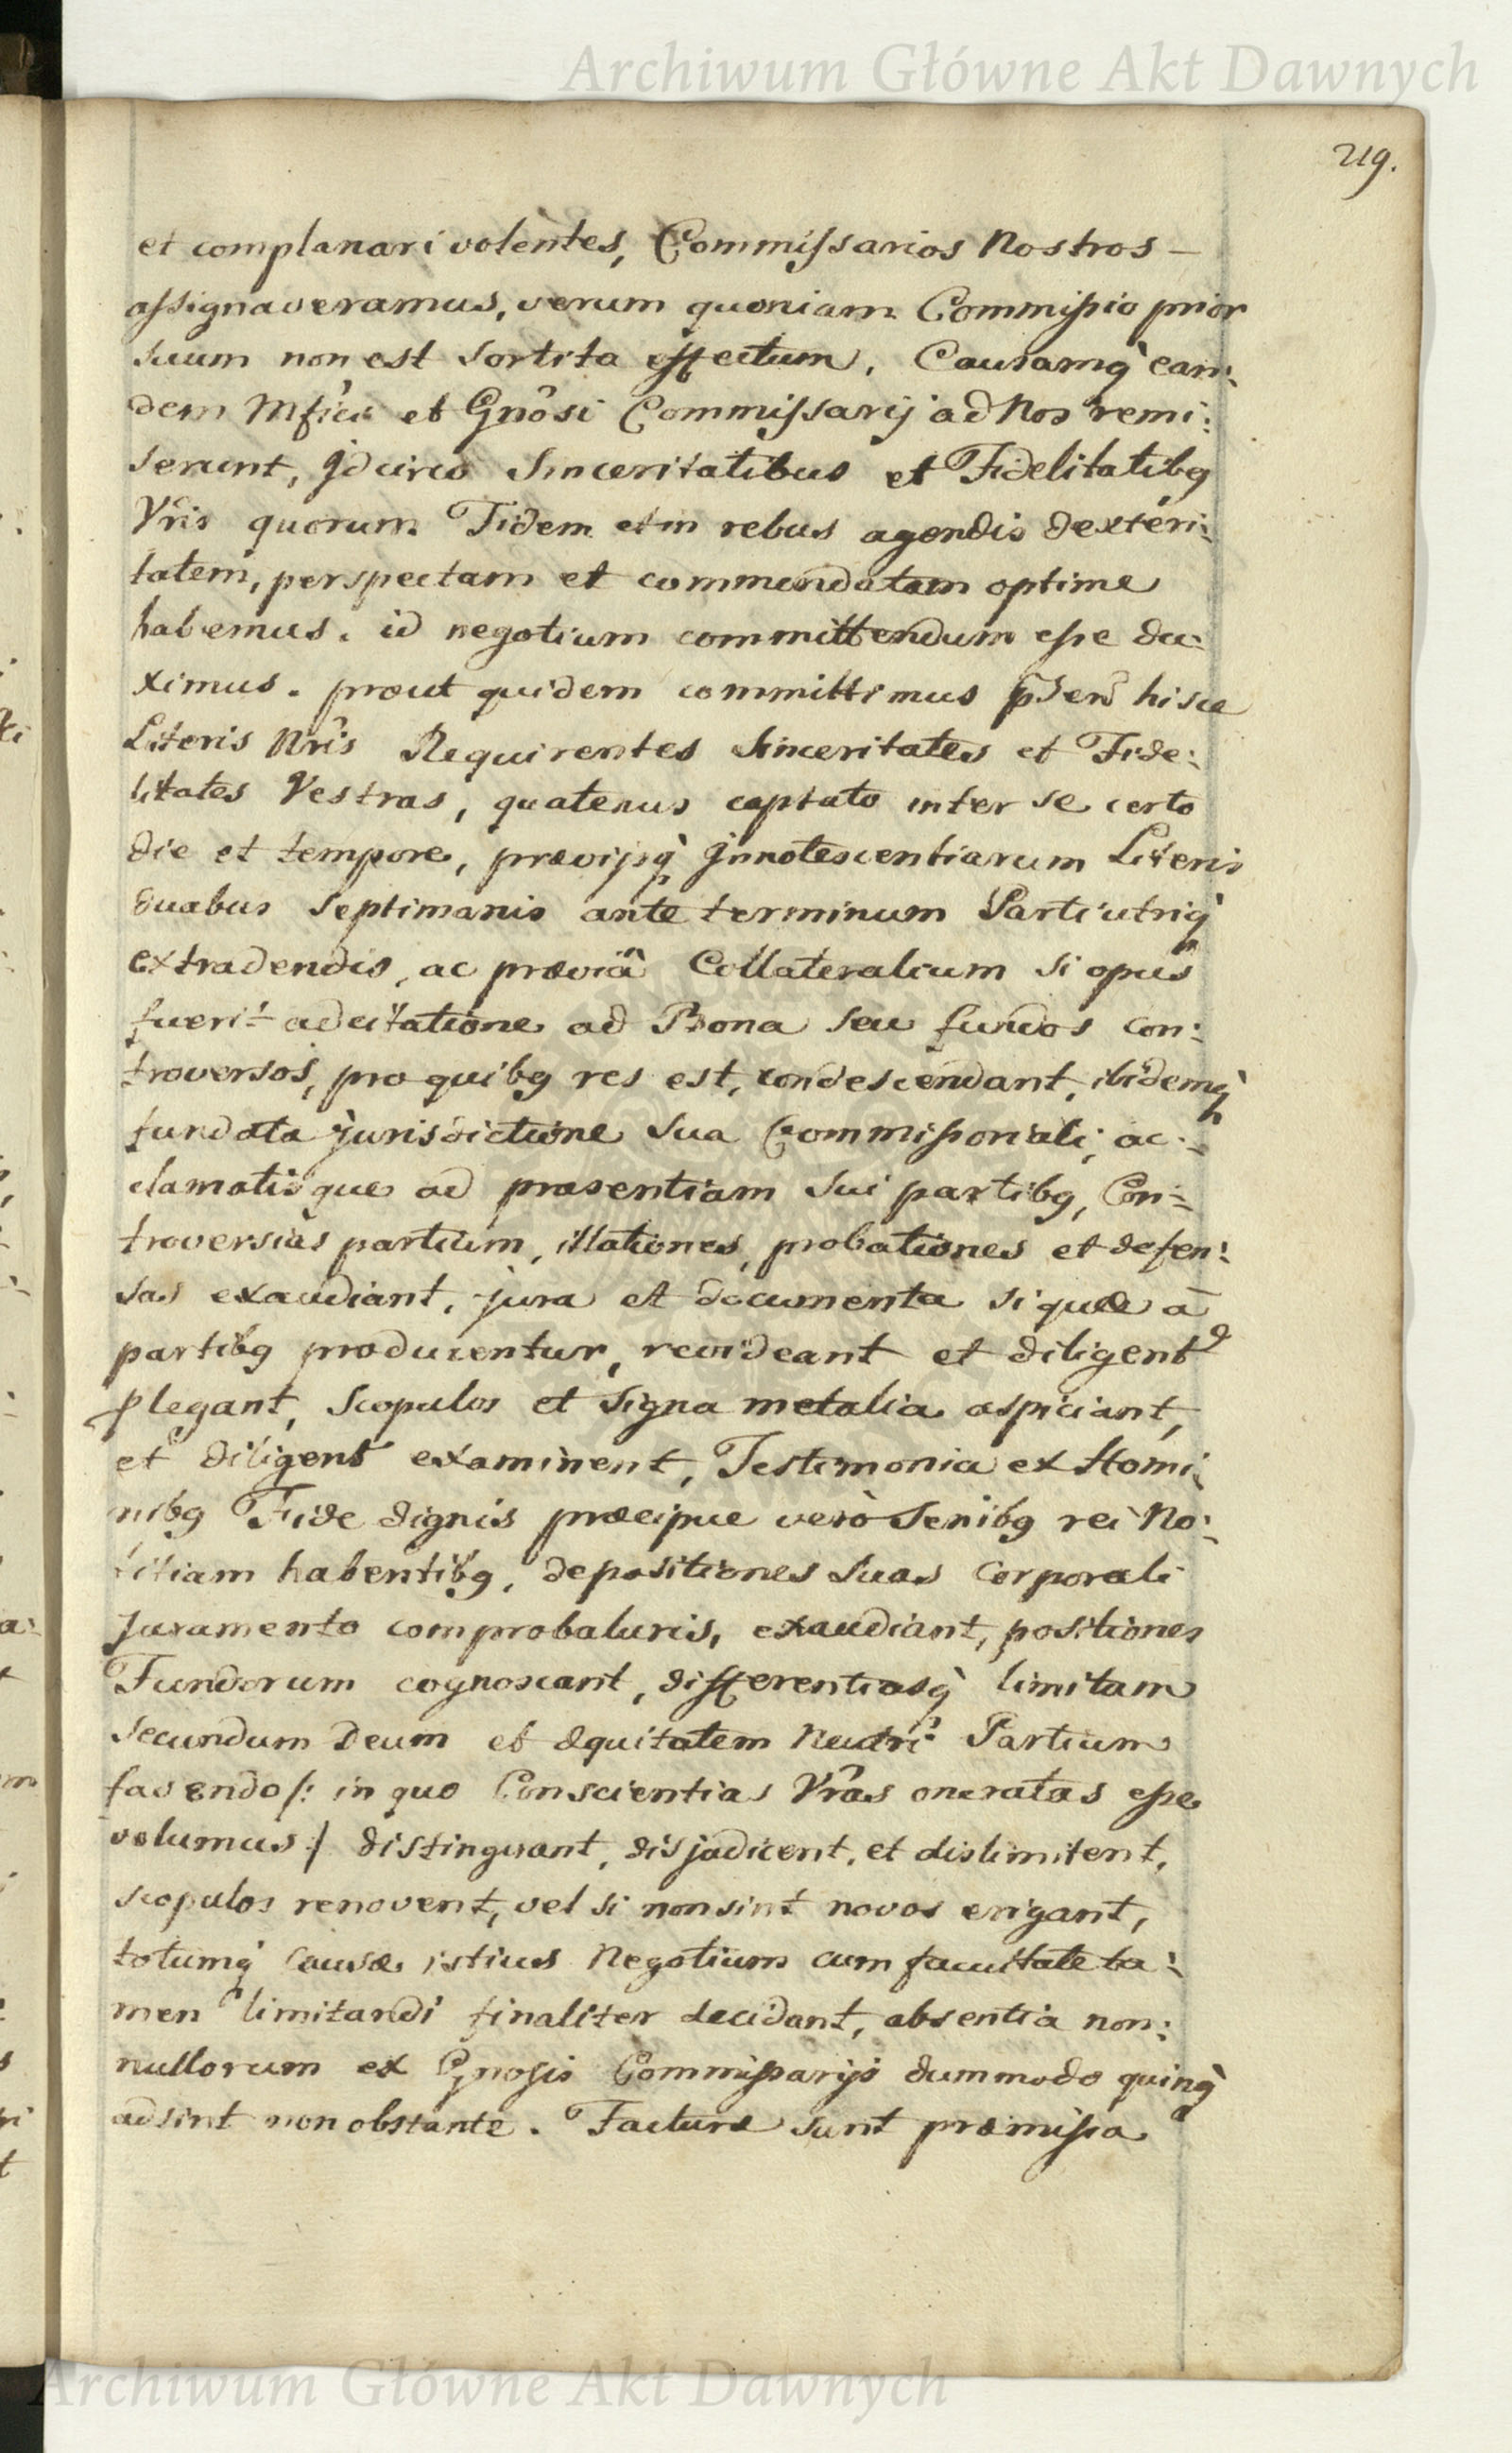 Archiwum Główne Akt Dawnych
219.
et complanari volentes, Commissarios Nostros –
assignaveramus, verum quoniam Commissio prior
suum non est sortita effectum, Causamq̀ ean:
dem Mfici et Gnôsi Commissarij ad Nos remi:
serunt, Idcirco Sinceritatibus et Fidelitatibg
Vris quorum Fidem et in rebus agendis dexteri:
tatem, perspectam et commendatam optime
habemus, id negotium committendum esse du:
ximus. prout quidem committimus hisce
Literis Nris Requirentes Sinceritates et Fide:
litates Vestras, quatenus captato inter se certo
die et tempore, prævijsq̀ Innotescentiarum Literis
duabus Septimanis ante terminum Parti utriq̀
extradendis, ac præviâ Collateralium si opus
fuerit adcitatione ad Bona seu fundos con:
troversos, pro quibg res est, condescendant, ibidemq̀
fundata Jurisdictione Sua Commissoriali, ac:
clamatisque ad præsentiam Sui partibg, Con:
troversias partium, illationes, probationes et defen:
sas exaudiant, jura et documenta si quæ à
partibg producentur, revideant et diligent
plegant, Scopulos et Signa metalia aspiciant,
et diligent examinent, Testimonia ex Homi:
nibg Fide dignis præcipue verò Senibg rei No:
titiam habentibg, depositiones Suas Corporali
Juramento comprobaturis, exaudiant, positiones
Fundorum cognoscant, differentiasq̀ limitam
Secundum Deum et Æquitatem Neutri Partium
favendo /: in quo Conscientias Vrâs oneratas esse
volumus :/ distinguant, disjudicent, et dislimitent,
scopulos renovent, vel si non sint novos erigant,
totumq̀ Causæ istius Negotium cum facultate ta:
men limitandi finaliter decidant, absentia non:
nullorum ex Gnosis Commissarijs dummodo quinq̀
adsint non obstante. Facturæ sunt præmissa
Archiwum Główne Akt Dawnych